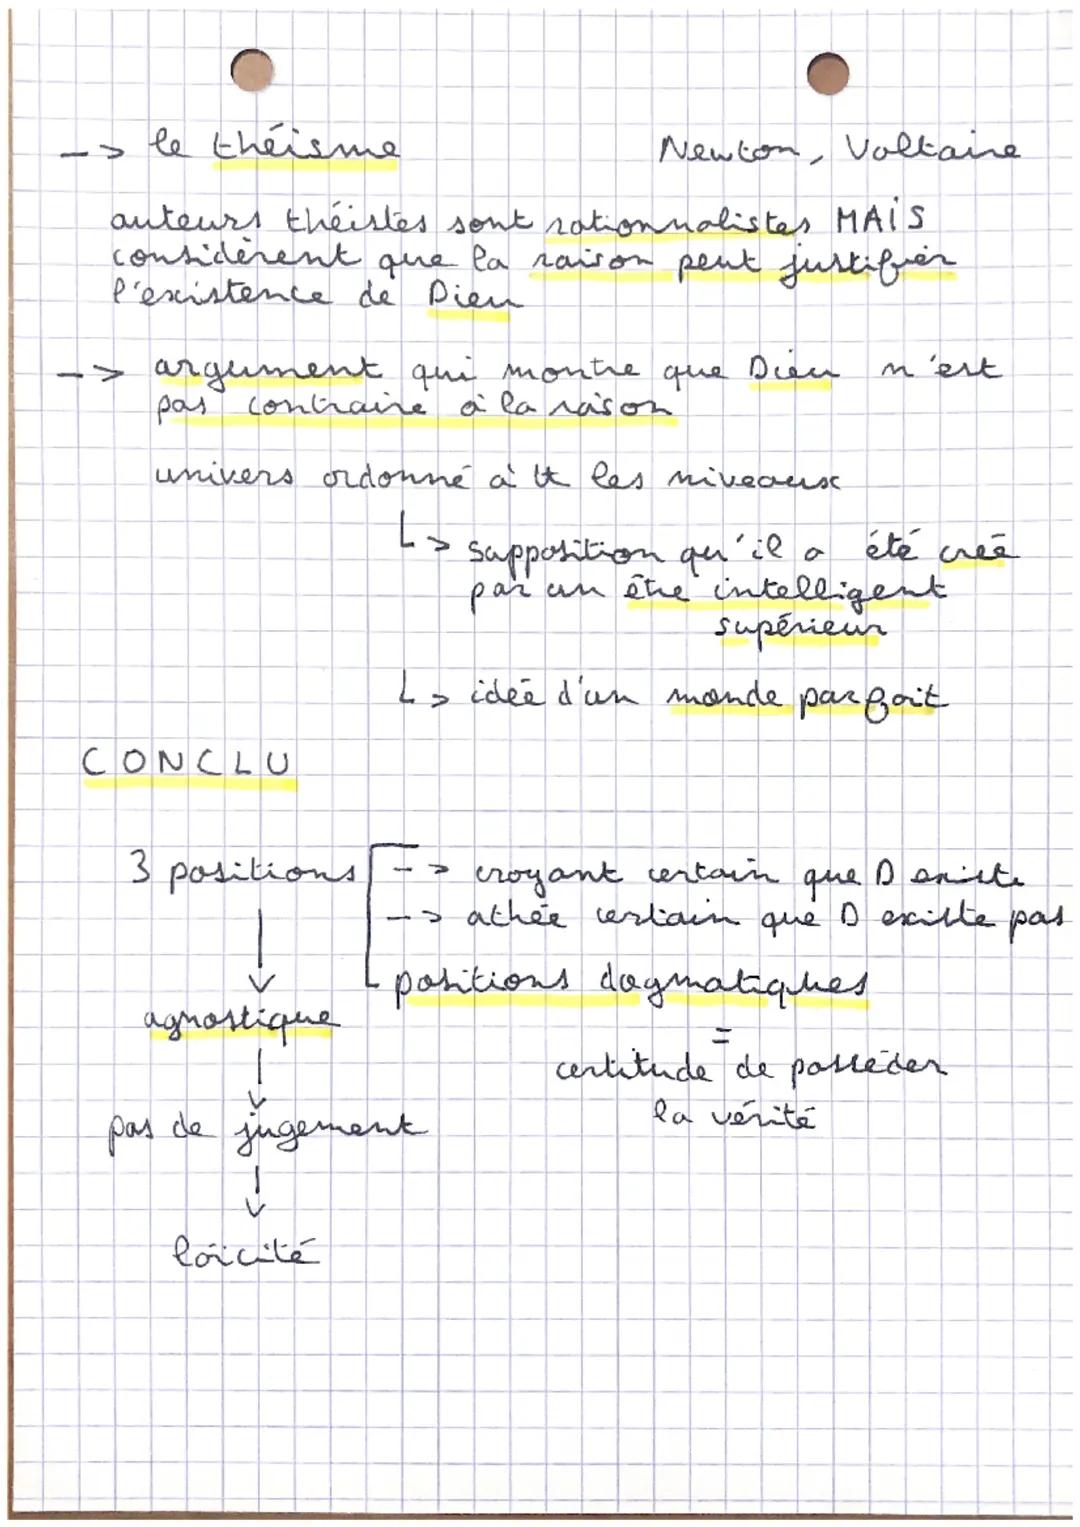 --> le théisme Newton, Voltaire
auteurs théistes sont rationnalistes MAIS
considèrent que la raison peut justifier
l'existence de Dieu
--> argument qui montre que Dieu n'est
pas contraire à la raison
univers ordonné à tt les niveaux
↳ supposition qu'il a été créé
par un être intelligent
supérieur
↳ idée d'un monde parfait
CONCLU
3 positions --> croyant certain que D existe
--> athée certain que D existe pas
positions dogmatiques
agnostique
=
certitude de posséder
la vérité
pas de jugement
laïcité